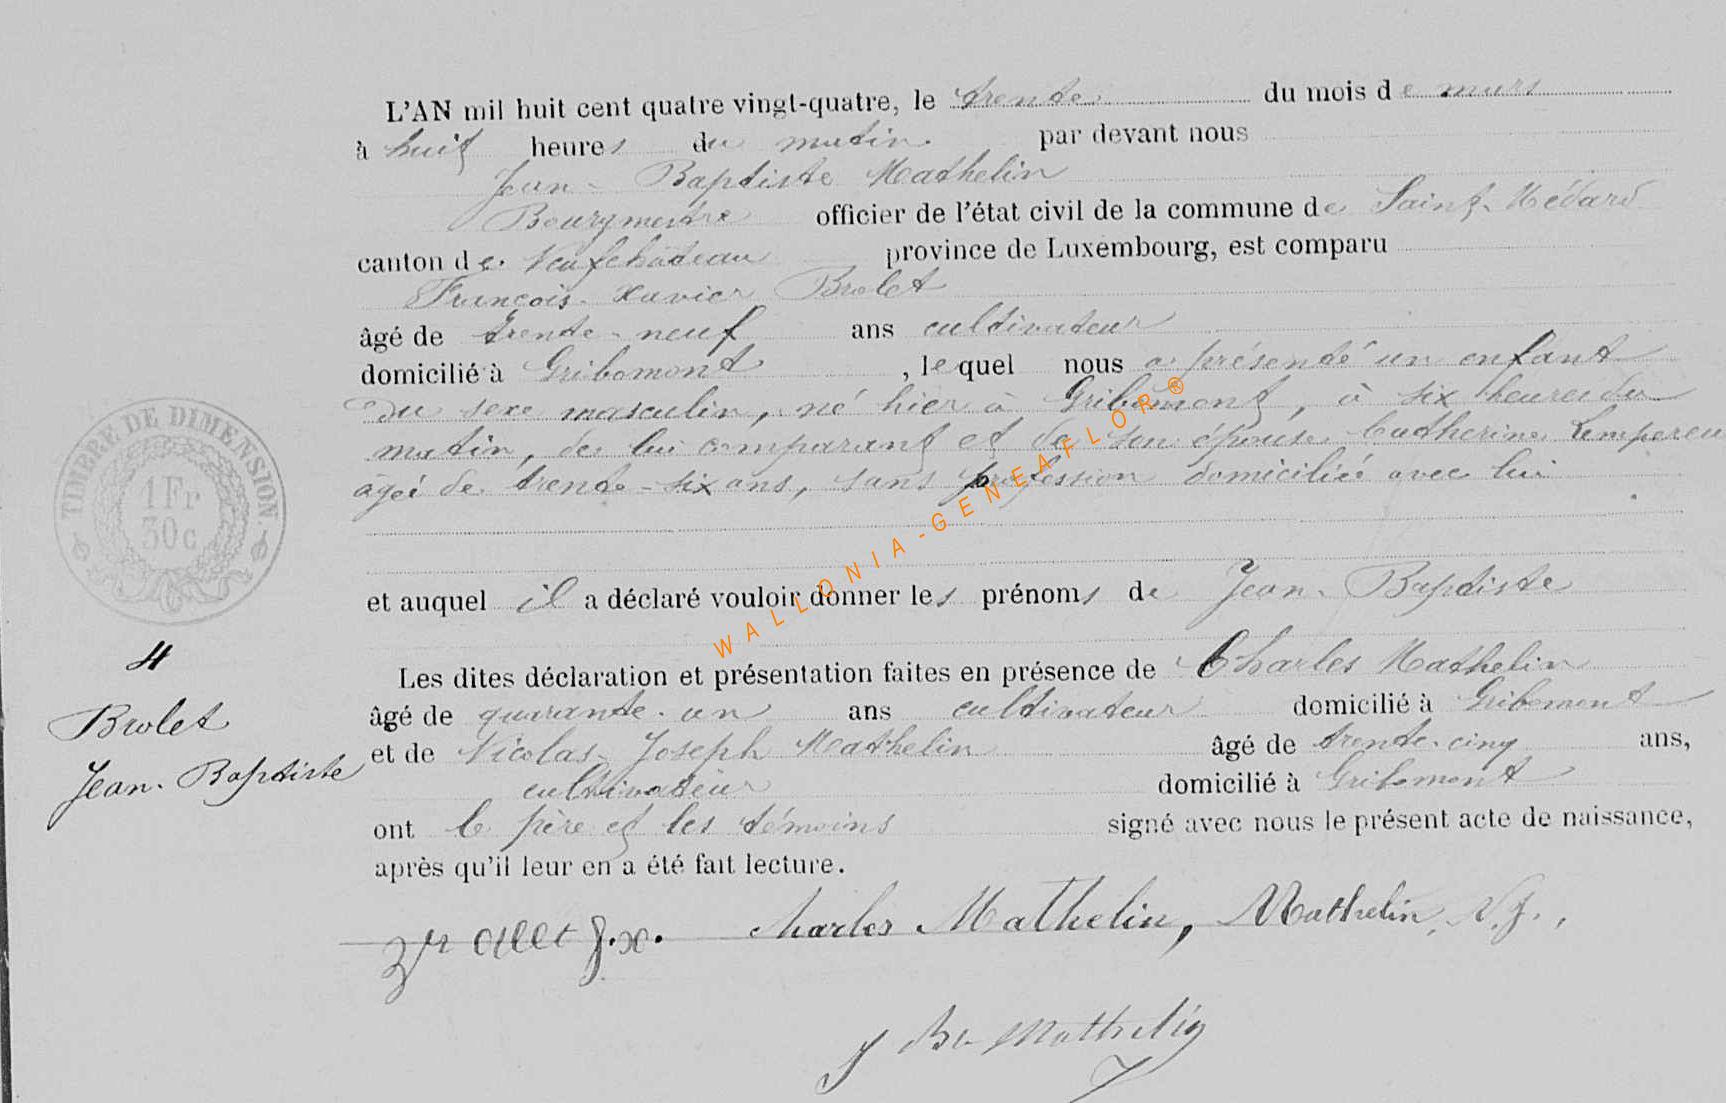 L'AN mil huit cent quatre vingt-quatre, le trente du mois de mars
à huit heures du matin. par devant nous
Jean-Baptiste Mathelin
Bourgmestre officier de l'état civil de la commune de Saint-Médard
canton de Neufchâteau province de Luxembourg, est comparu
François-Xavier Brolet
âgé de trente-neuf ans cultivateur
domicilié à Gribomont, lequel nous a présenté un enfant
du sexe masculin, né hier à Gribomont, à six heures du
matin, de lui comparant et de son épouse Catherine Lempereu
âgée de trente-six ans, sans profession domiciliée avec lui
TIMBRE DE DIMENSION.
1 Fr
30 c
et auquel il a déclaré vouloir donner les prénoms de Jean-Baptiste
4
Brolet
Jean-Baptiste
Les dites déclaration et présentation faites en présence de Charles Mathelin
âgé de quarante-un ans cultivateur domicilié à Gribomont
et de Nicolas-Joseph Mathelin âgé de trente-cinq ans,
cultivateur domicilié à Gribomont
ont le père et les témoins signé avec nous le présent acte de naissance,
après qu'il leur en a été fait lecture.
f.x. Charles Mathelin, Mathelin, N.J.,
J Bte Mathelin
WALLONIA-GENEAFLOR®